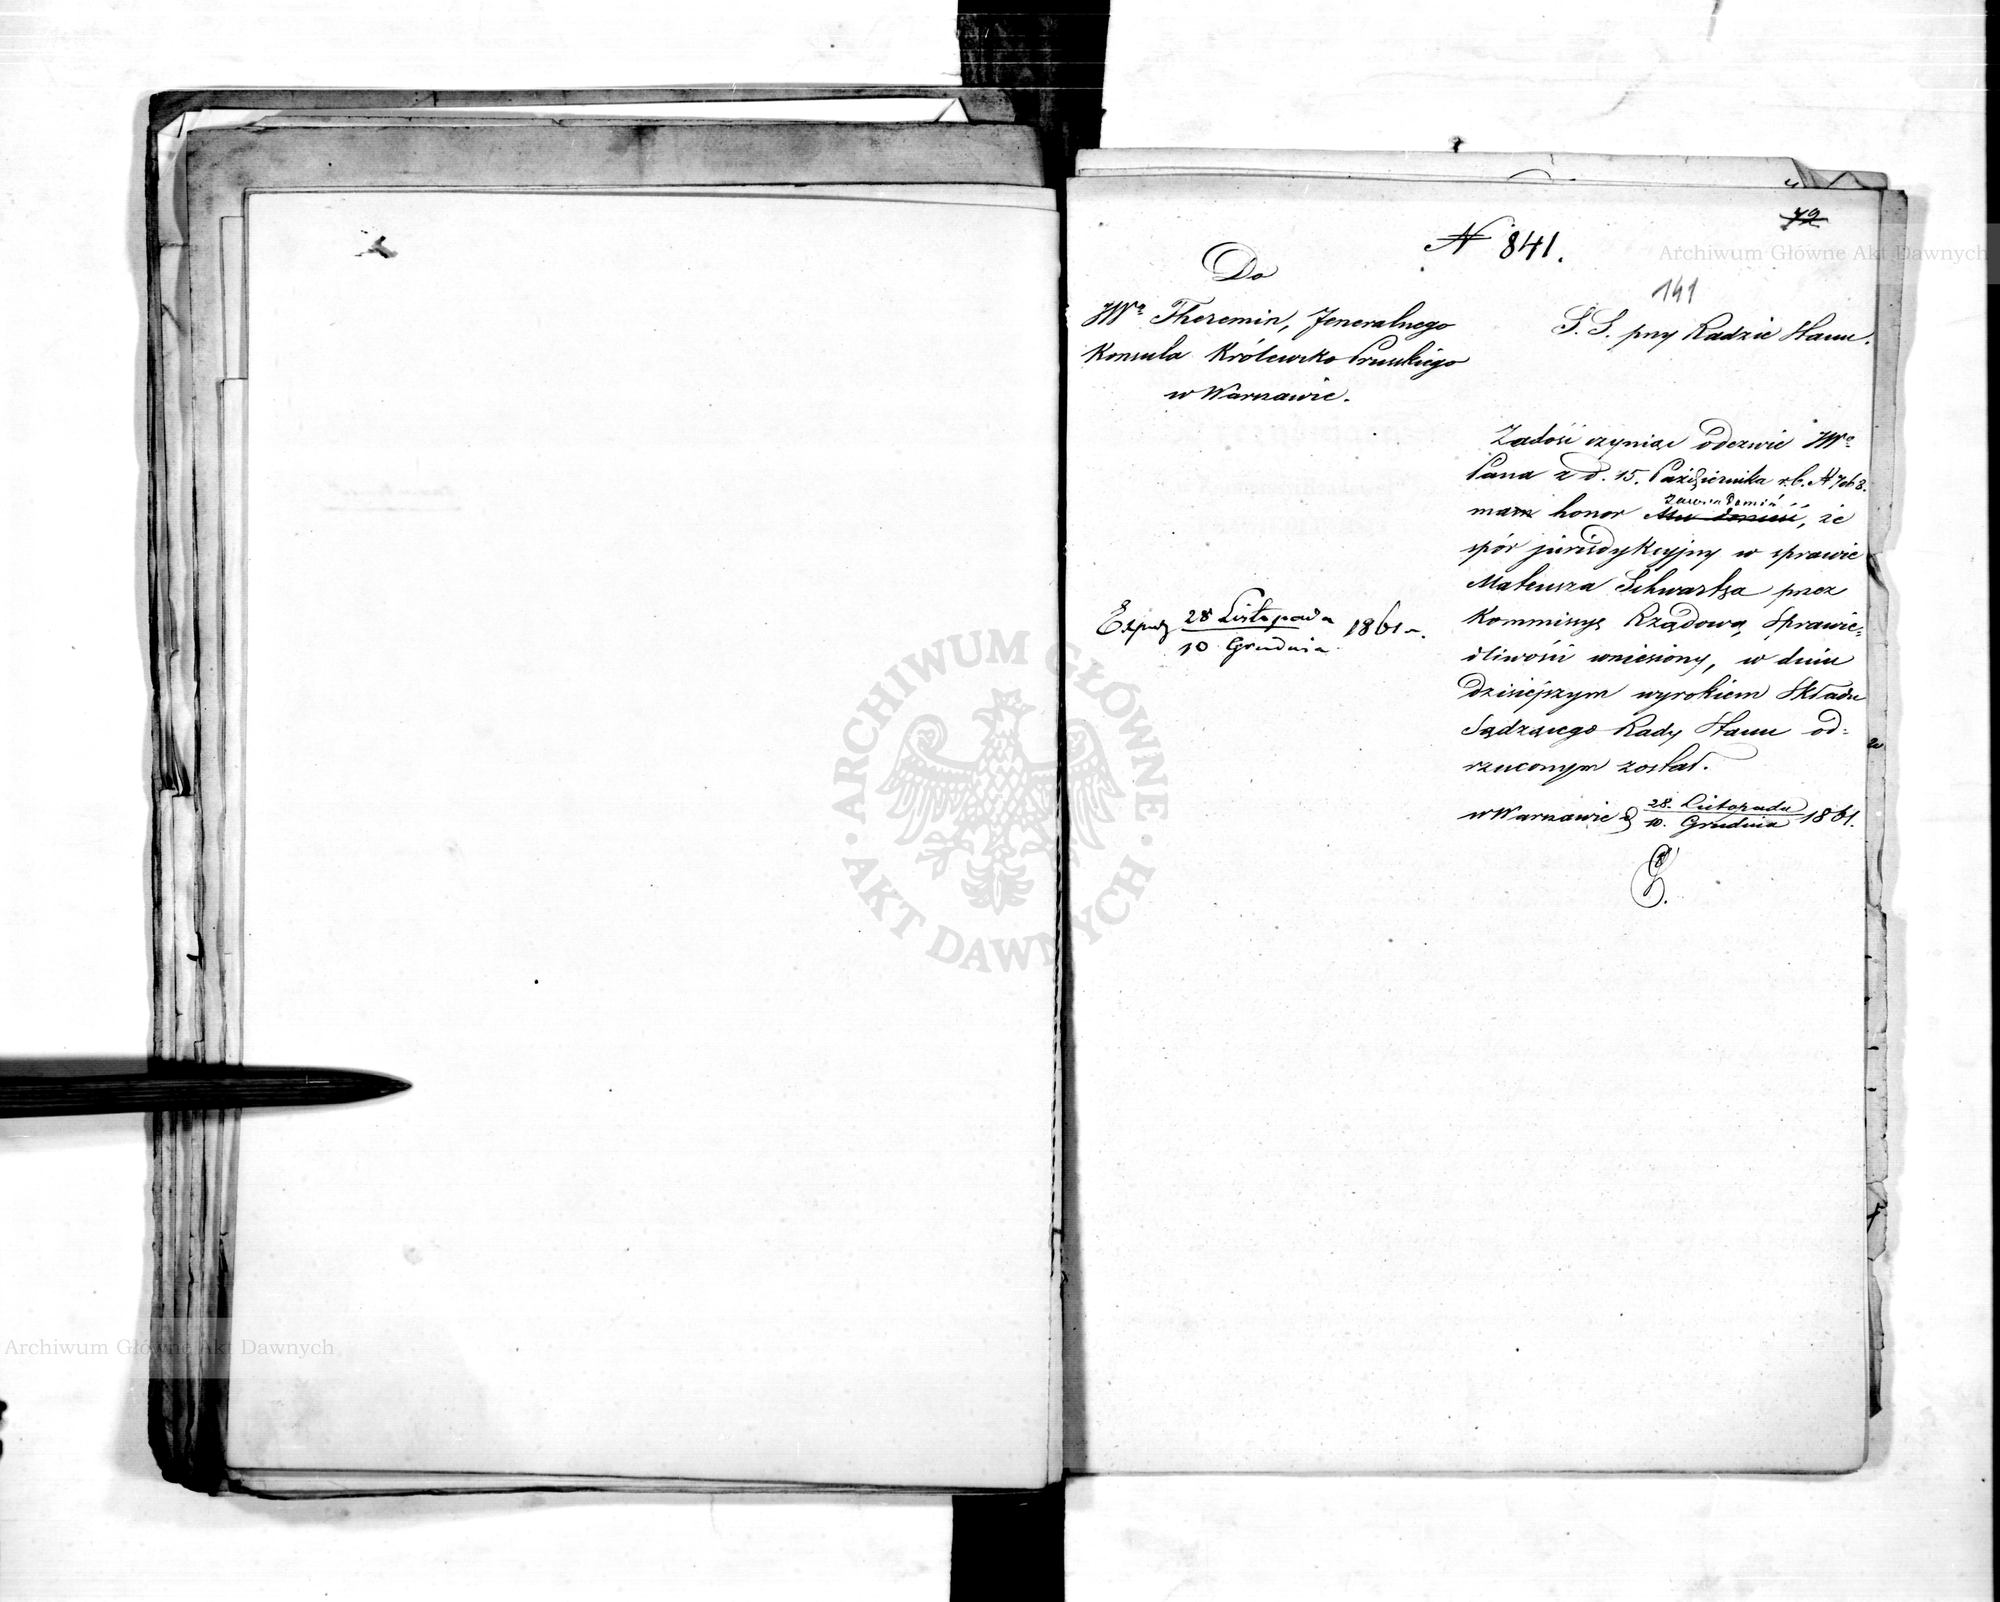 72
N 841.
141
Do
JWo Theremin, Jeneralnego
Konsula Królewsko Pruskiego
w Warszawie.
S. S. przy Radzie Stanu.
Zadość czyniąc odezwie JWo
Pana z d. 15. Października r.b. N 7068.
zawiadomić
mam honor Mu donieść, że
spór jurisdykcyjny w sprawie
Mateusza Schwartza przez
Kommissyę Rządową Sprawie=
dliwości wniesiony, w dniu
dzisiejszym wyrokiem Składu
Sądzącego Rady Stanu od=
rzuconym został.
w Warszawie d 28. Listopada 1861.
10. Grudnia
28 Listopada 1861 r.
10 Grudnia
Archiwum Główne Akt Dawnych
ARCHIWUM GŁÓWNE
AKT DAWNYCH
Archiwum Główne Akt Dawnych